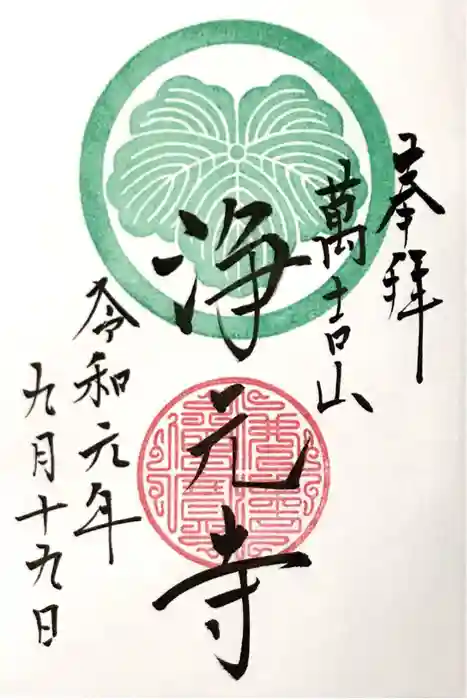 奉拝
萬吉山
浄元寺
令和元年
九月十九日